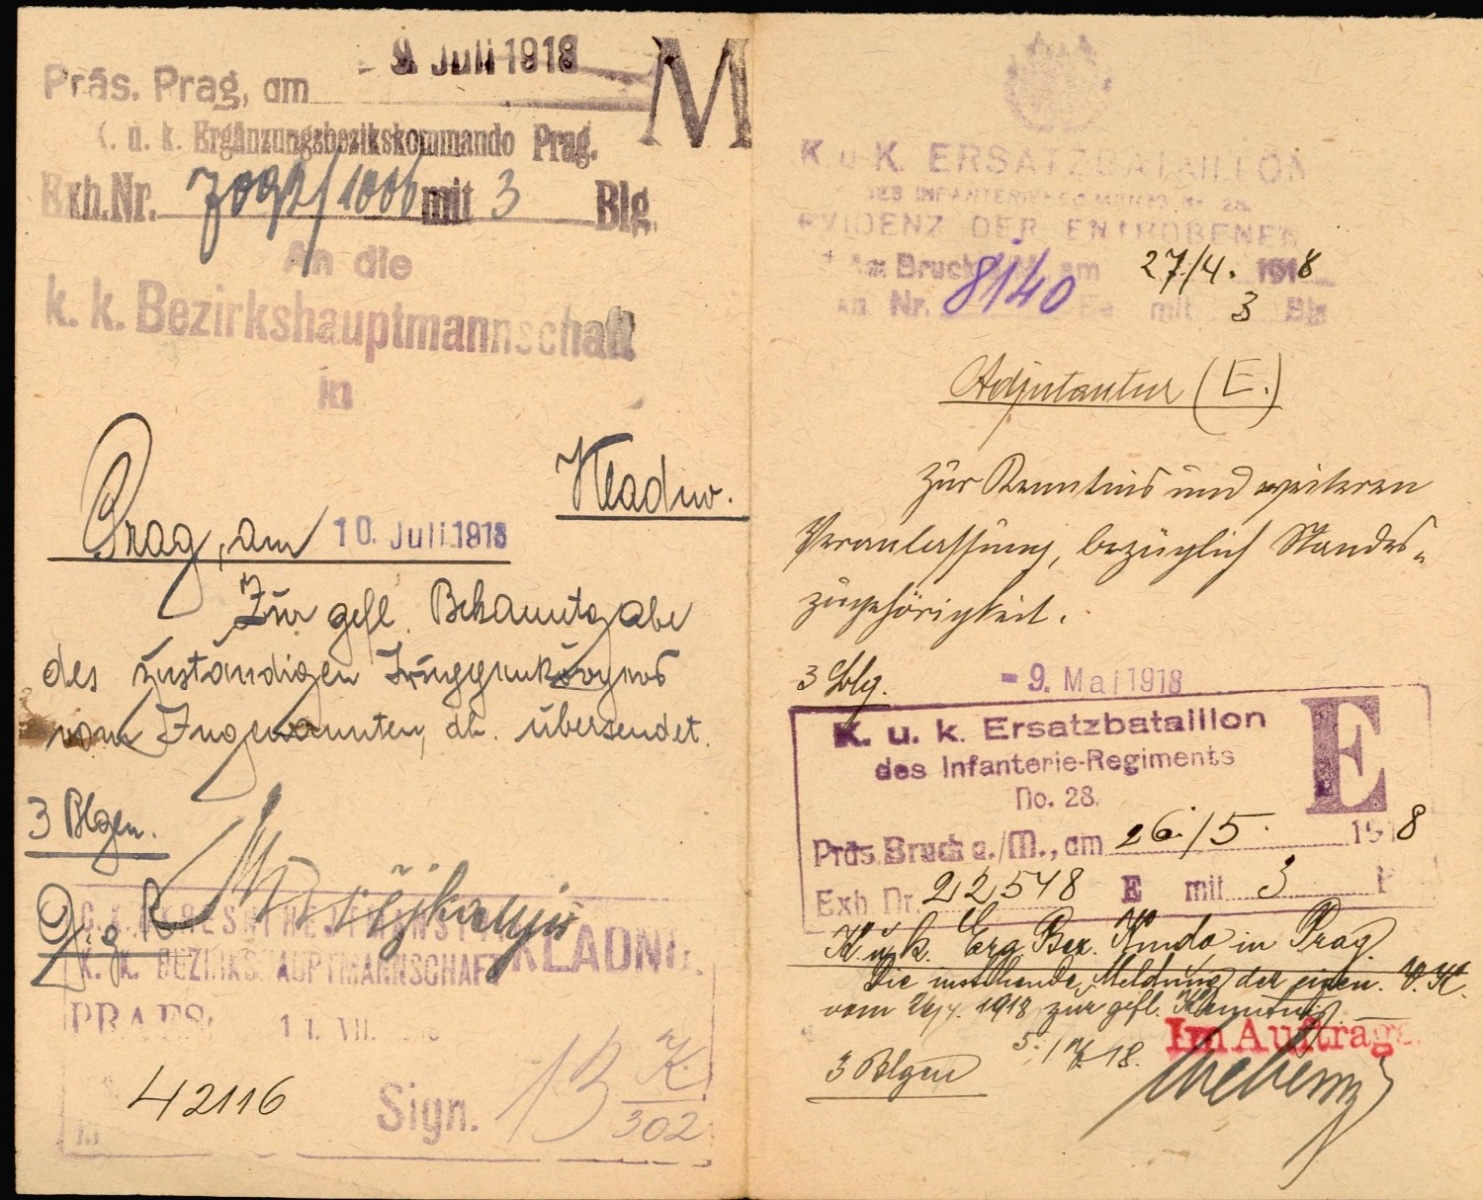 9. Juli 1918
M
Präs. Prag, am
k. u. k. Ergänzungsbezirkskommando Prag.
Exh. Nr. mit 3 Blg.
An die
k. k. Bezirkshauptmannschaft
in
Kladno.
Prag, am 10. Juli 1918
Zur gefl. Bekanntgabe
des zuständigen Truppenkörpers
vom Zugenannten, übersendet.
3 Blgen.
C. K. OKRESNÍ HEJTMANSTVÍ KLADNO.
K. K. BEZIRKSHAUPTMANNSCHAFT
PRAES: 11. VII.
42116
Sign. 13 K. 302
K. u. K. ERSATZBATAILLON
DES INFANTERIEREGIMENTS Nr. 28.
EVIDENZ DER ENTHOBENEN
Bruck am 27/4. 1918
Nr. 8140 mit 3 Blg
Adjutantur (E.)
Zur Kenntnis und weiteren
Veranlassung, bezüglich Standes-
zugehörigkeit.
3 Blg.
- 9. Mai 1918
K. u. k. Ersatzbataillon
des Infanterie-Regiments
No. 28.
E
Präs. Bruck a./M., am 26./5. 1918
Exh. Nr. 22548 E mit 3
K. u. k. Erg. Bez. Kmdo in Prag.
Die Meldung der
vom 1918 zur gefl. Kenntnis.
Im Auftrage
3 Blgen